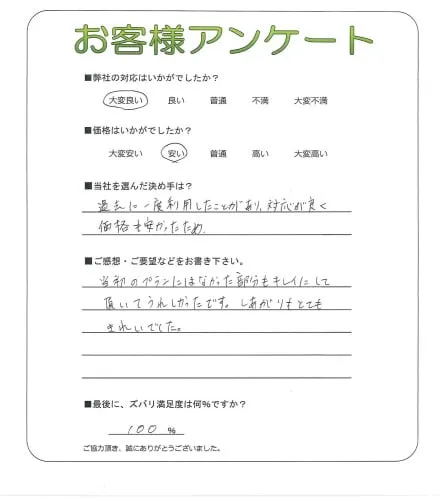 お客様アンケート
■弊社の対応はいかがでしたか？
大変良い 良い 普通 不満 大変不満
■価格はいかがでしたか？
大変安い 安い 普通 高い 大変高い
■当社を選んだ決め手は？
過去に一度利用したことがあり、対応が良く
価格も安かったため
■ご感想・ご要望などをお書き下さい。
当初のプランにはなかった部分もキレイにして
頂いてうれしかったです。しあがりもとても
きれいでした。
■最後に、ズバリ満足度は何％ですか？
100 %
ご協力頂き、誠にありがとうございました。